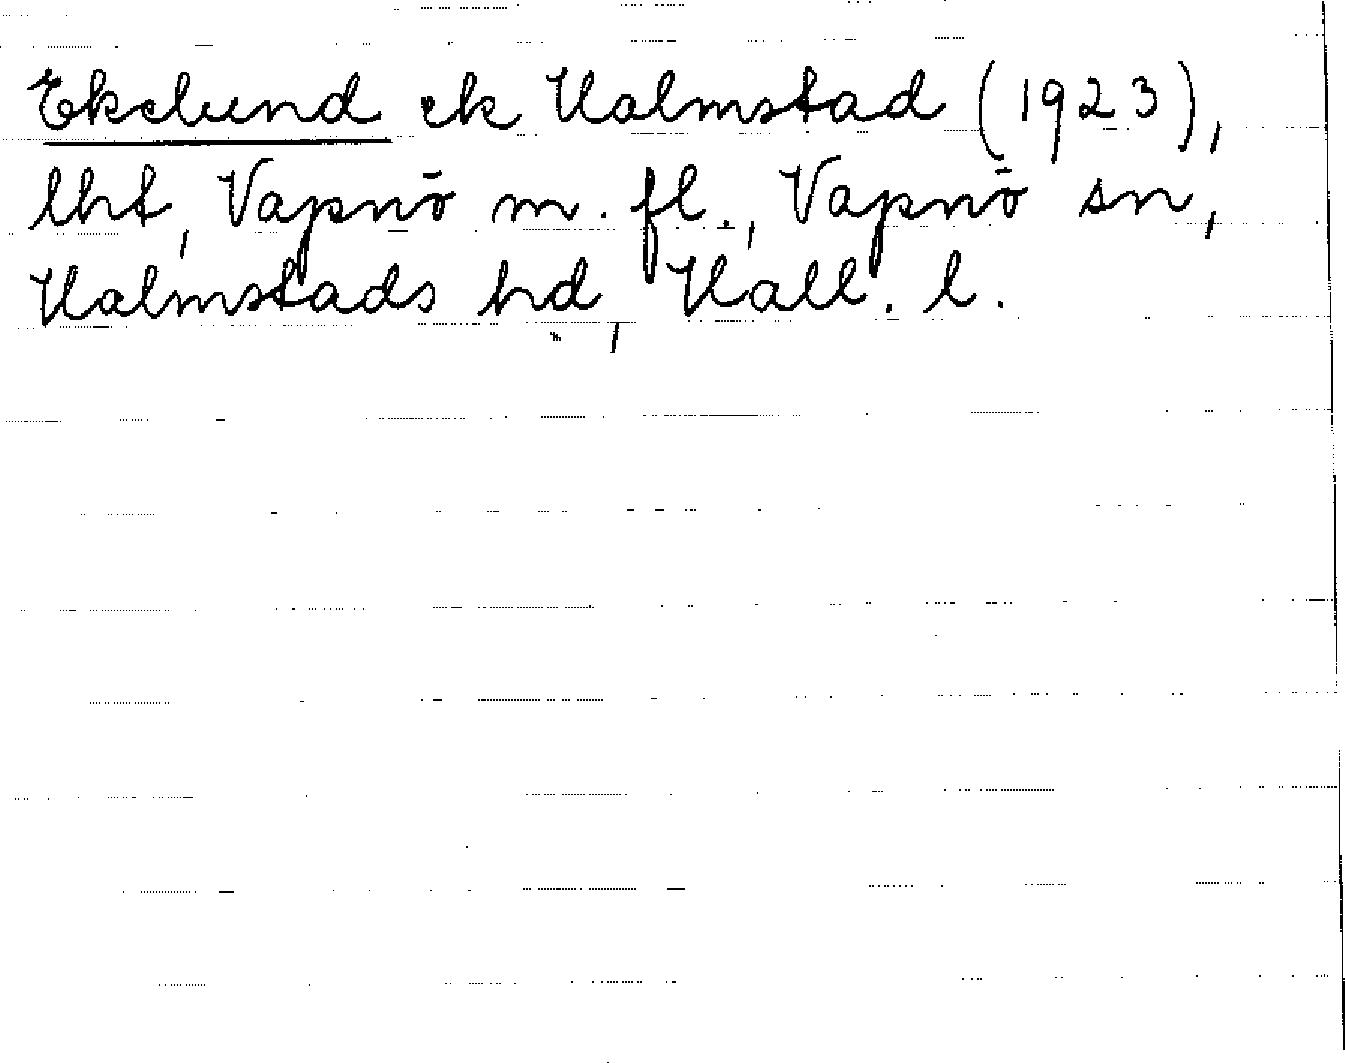 Ekelund ek Halmstad (1923),
lht, Vapnö m. fl., Vapnö sn,
Halmstads hd, Hall. l.